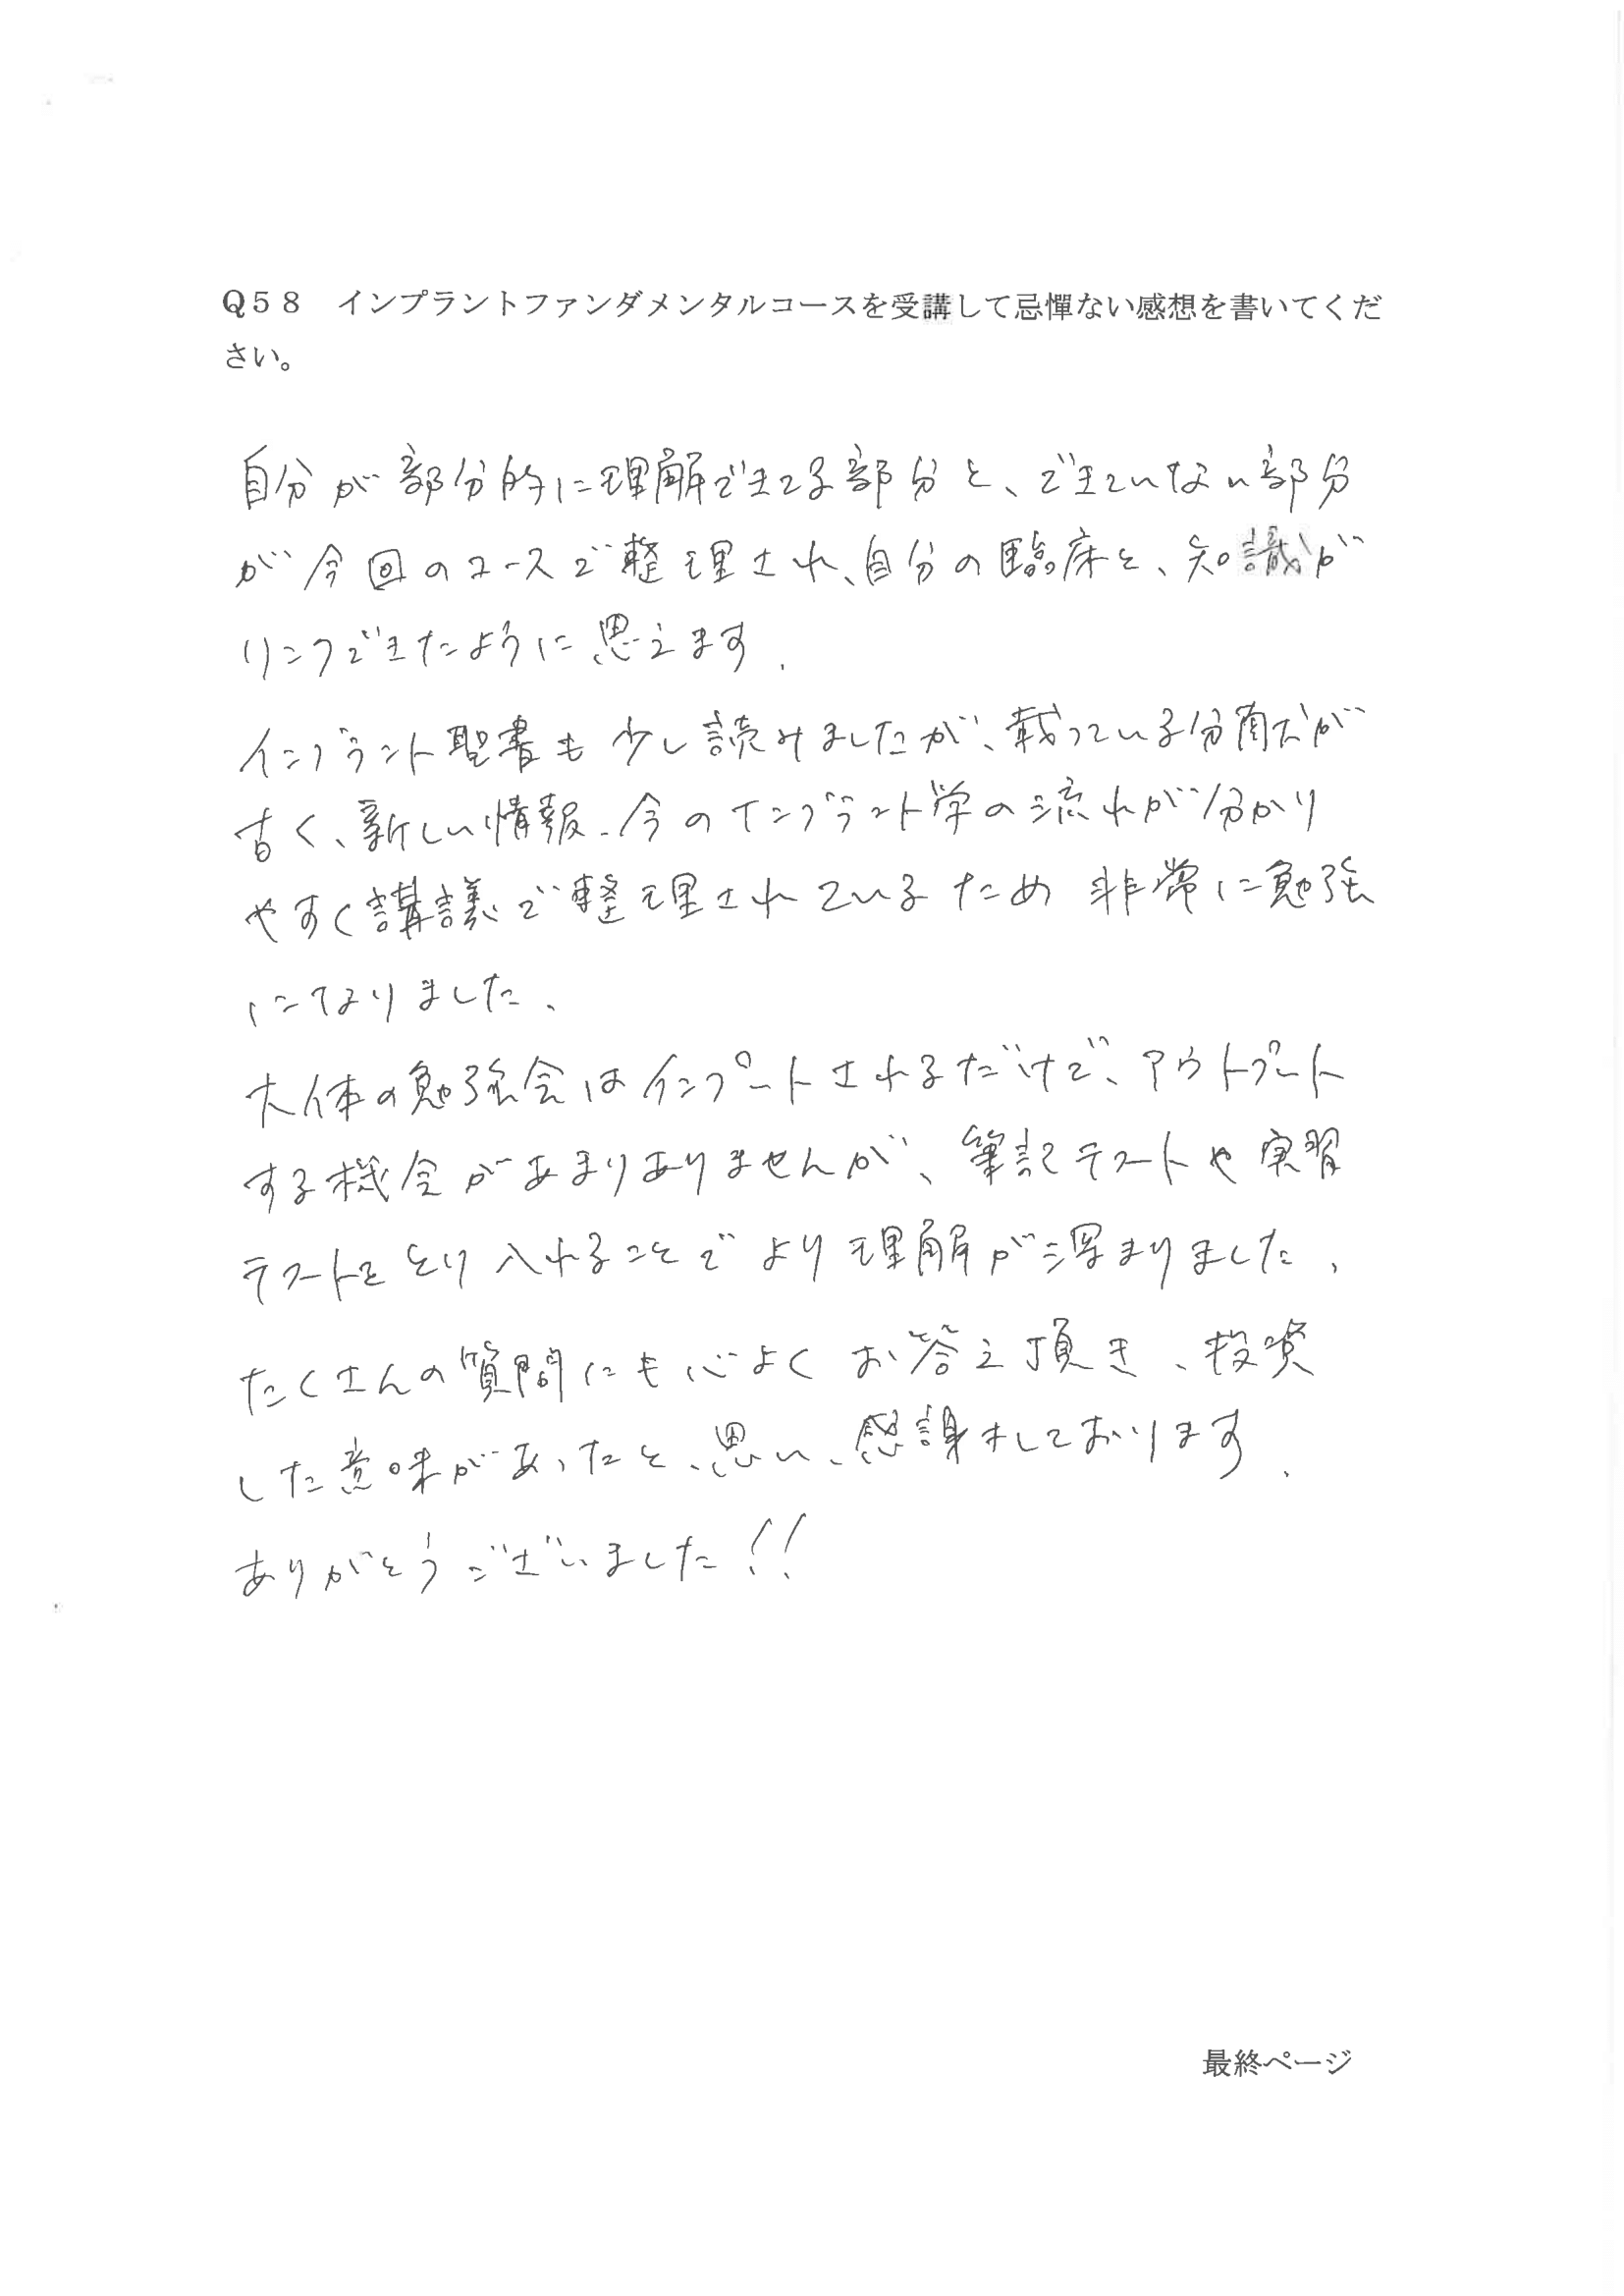 Q58　インプラントファンダメンタルコースを受講して忌憚ない感想を書いてくだ
さい。
自分が部分的に理解できてる部分と、できていない部分
が今回のコースで整理され、自分の臨床と、知識が
リンクできたように思えます.
インプラント聖書も少し読みましたが、載っている分献が
古く、新しい情報、今のインプラント学の流れが分かり
やすく講議で整理されているため非常に勉強
になりました、
大体の勉強会はインプートされるだけで、アウトプート
する機会があまりありませんが、筆記テストや実習
テストをとり入れることでより理解が深まりました、
たくさんの質問にも心よくお答え頂き、投資
した意味があったと、思い、感謝しております.
ありがとうございました!!
最終ページ